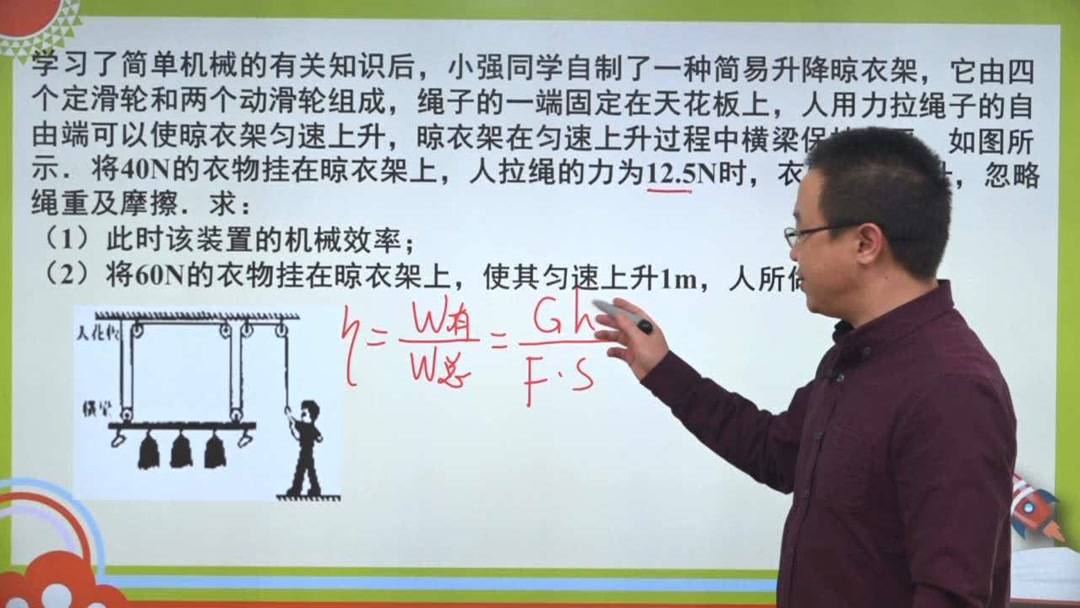 学习了简单机械的有关知识后，小强同学自制了一种简易升降晾衣架，它由四
个定滑轮和两个动滑轮组成，绳子的一端固定在天花板上，人用力拉绳子的自
由端可以使晾衣架匀速上升，晾衣架在匀速上升过程中横梁保 如图所
示．将40N的衣物挂在晾衣架上，人拉绳的力为12.5N时，衣 ，忽略
绳重及摩擦．求：
（1）此时该装置的机械效率；
（2）将60N的衣物挂在晾衣架上，使其匀速上升1m，人所
天花板
横梁
η = W有/W总 = Gh/F·S